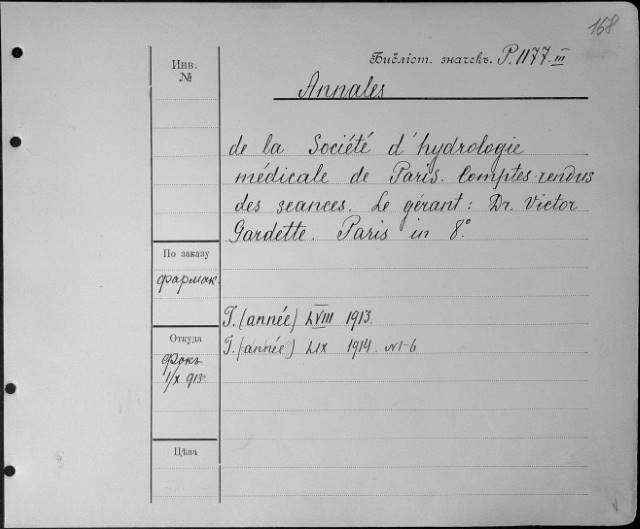 168
Инв.
№
Библіот. значекъ. P.1177.III
Annales
de la Société d'hydrologie
médicale de Paris. Comptes-rendus
des seances. Le gérant: Dr. Victor
Gardette. Paris in 8°.
По заказу
фармак.
T. (année) LVIII 1913.
Откуда
T. (année) LIX 1914. N1-6
Фокъ
1/X 913.
Цѣна